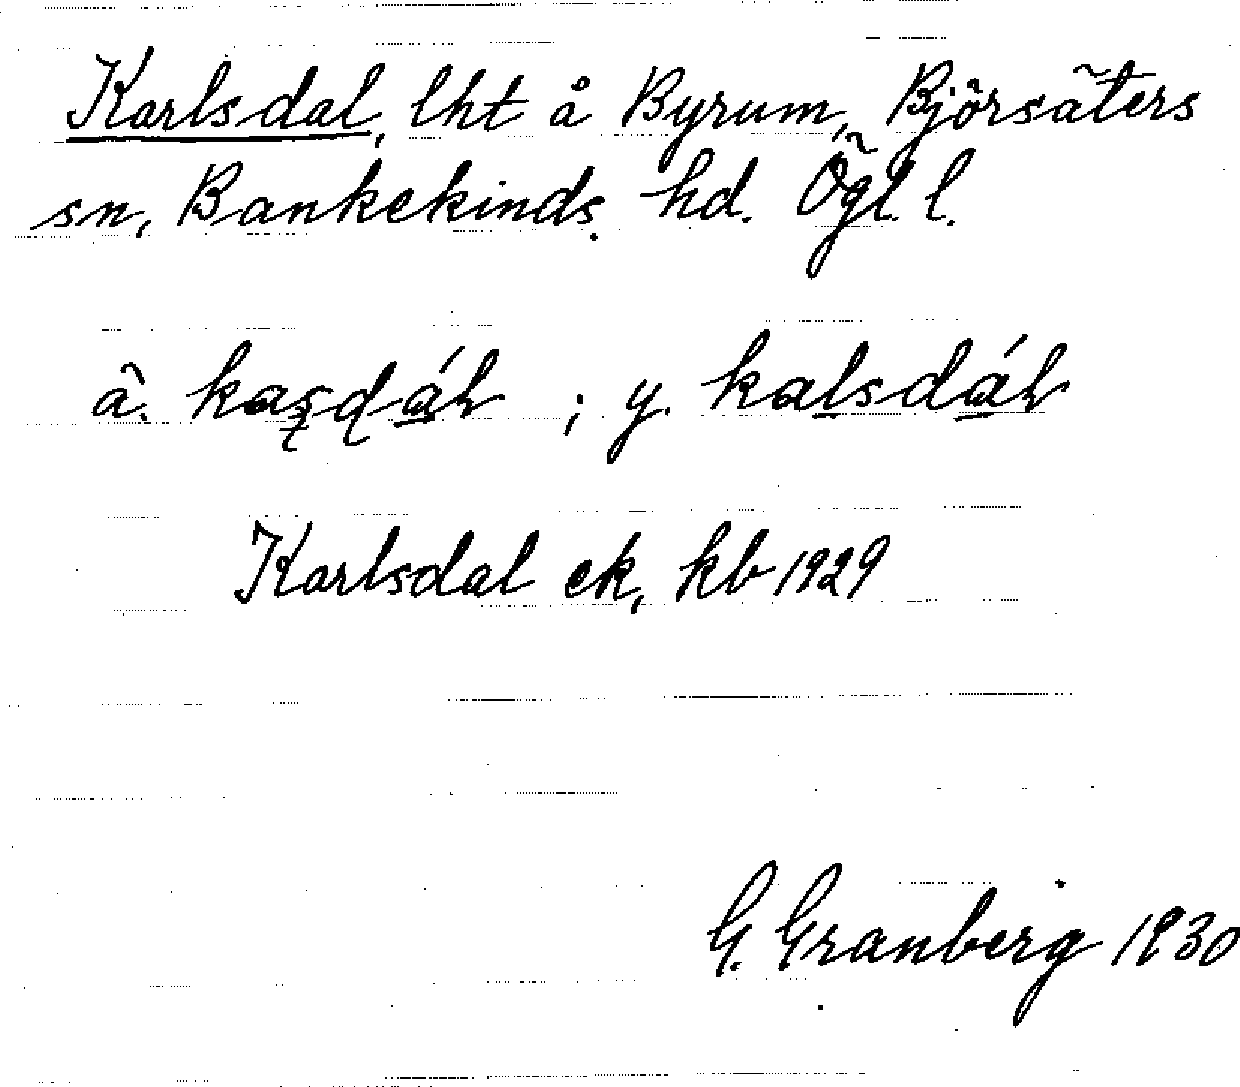 Karlsdal, lht å Byrum, Björsäters
sn, Bankekinds hd. Ögl. l.
ä. kaʂɖál ; y. kalsdál
Karlsdal ek, kb 1929
G. Granberg 1930